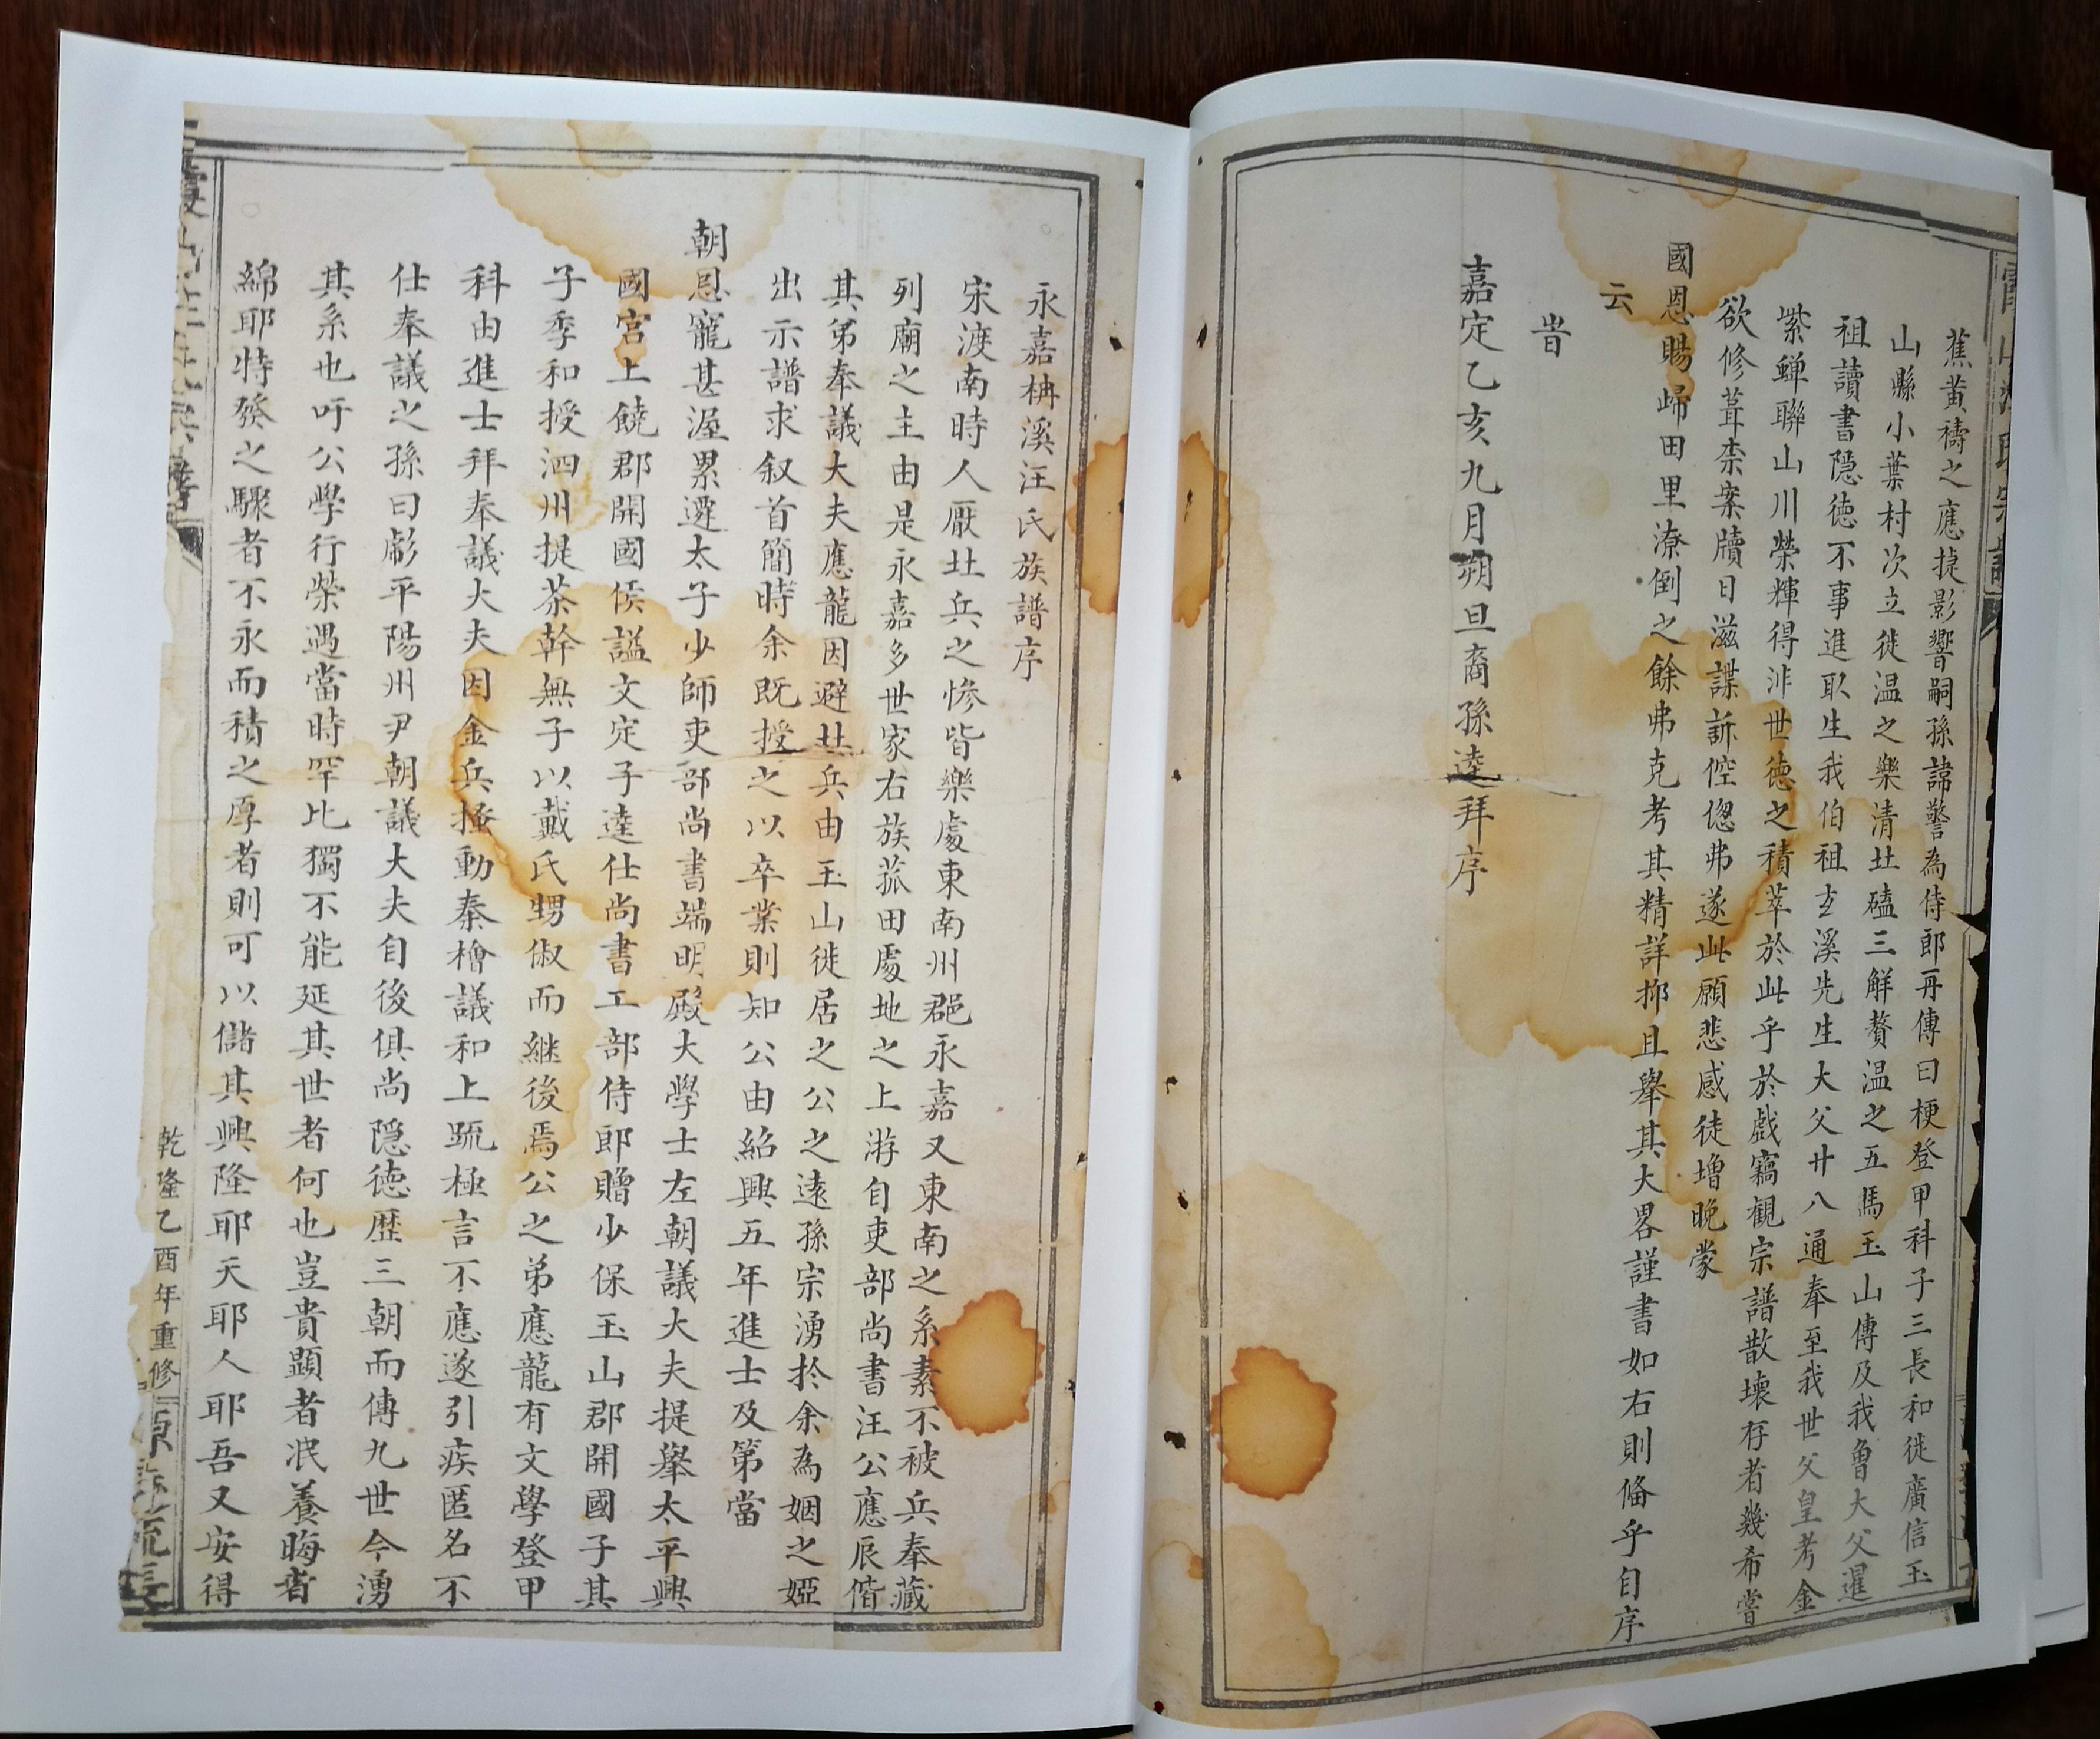 蕉黄禱之應捷影響嗣孫諱謷為侍郎再傳曰梗登甲科子三長和徙廣信玉
山縣小葉村次立徙温之樂清北磕三鮮贅温之五馬玉山傳及我曾大父暹
祖讀書隠徳不事進取生我伯祖玄溪先生大父廿八通奉至我世父皇考金
紫蟬聯山川榮輝得非世徳之積萃於此乎於戲竊観宗譜散壊存者幾希嘗
欲修葺柰案牘日滋諜訴倥偬弗遂此願悲感徒増晚蒙
國恩賜歸田里潦倒之餘弗克考其精詳抑且舉其大畧謹書如右則俻乎自序
云
旹
嘉定乙亥九月朔旦裔孫逵拜序
永嘉柟溪汪氏族譜序
宋渡南時人厭北兵之慘皆樂處東南州郡永嘉又東南之系素不被兵奉藏
列廟之主由是永嘉多世家右族菰田處地之上游自吏部尚書汪公應辰偕
其弟奉議大夫應龍因避北兵由玉山徙居之公之逺孫宗湧扵余為姻之婭
出示譜求叙首簡時余既授之以卒業則知公由紹興五年進士及第當
朝恩寵甚渥累遷太子少師吏部尚書端明殿大學士左朝議大夫提舉太平興
國宮上饒郡開國侯謚文定子逵仕尚書工部侍郎贈少保玉山郡開國子其
子季和授泗州提茶幹無子以戴氏甥俶而継後焉公之弟應龍有文學登甲
科由進士拜奉議大夫因金兵搔動秦檜議和上䟽極言不應遂引疾匿名不
仕奉議之孫曰彪平陽州尹朝議大夫自後俱尚隠徳歴三朝而傳九世今湧
其系也吁公學行榮遇當時罕比獨不能延其世者何也豈貴顯者泯養晦者
綿耶特發之驟者不永而積之厚者則可以儲其興隆耶天耶人耶吾又安得
乾隆乙酉年重修